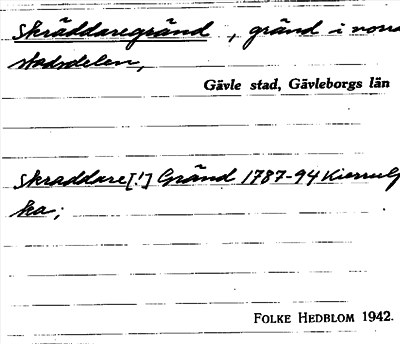 Skräddaregränd, gränd i norra
stadsdelen,
Gävle stad, Gävleborgs län
Skraddare[!] Gränd 1787-94
ka;
FOLKE HEDBLOM 1942.